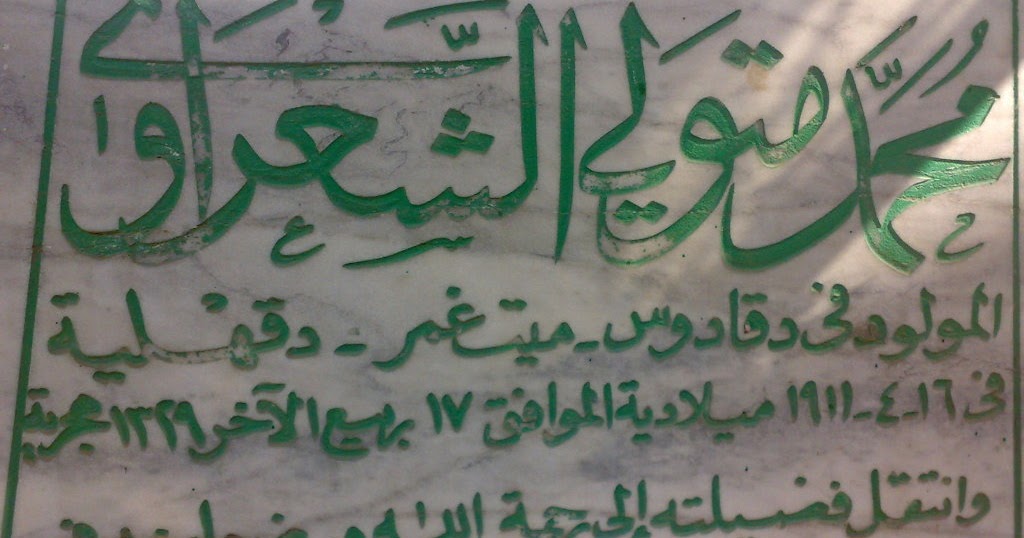 محمد متولي الشعراوى
المولود فى دقادوس - ميت غمر - دقهلية
فى ١٦-٤-١٩١١ ميلادية الموافق ١٧ ربيع الآخر ١٣٢٩ هجرية
وانتقل فضيلته إلى رحمة الله